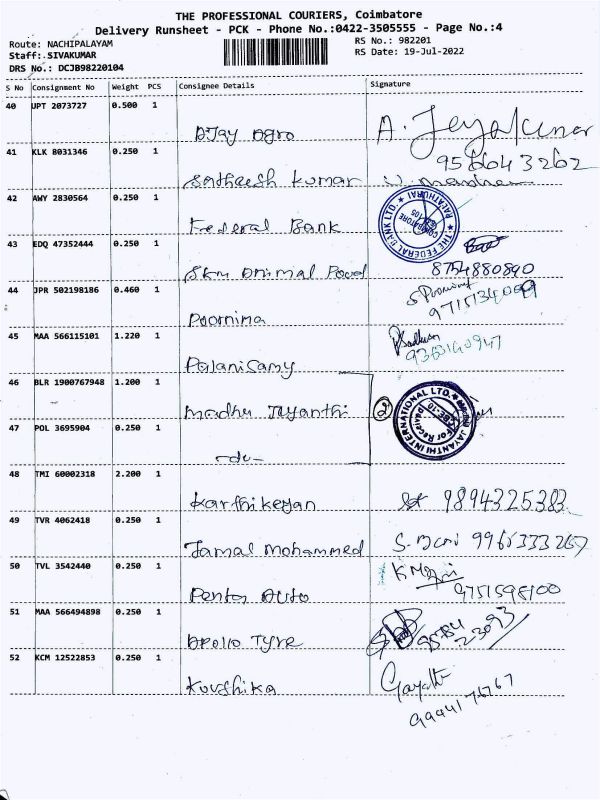 THE PROFESSIONAL COURIERS, Coimbatore
Delivery Runsheet - PCK - Phone No.:0422-3505555 - Page No.:4
Route: NACHIPALAYAM
RS No.: 982201
Staff: SIVAKUMAR
RS Date: 19-Jul-2022
DRS No.: DCJB98220104
S No Consignment No Weight PCS Consignee Details Signature
40 JPT 2073727 0.500 1
AJay Agro A. Jeyakumar
41 KLK 8031346 0.250 1
Satheesh kumar
42 AWY 2830564 0.250 1
Federal Bank THE FEDERAL BANK LTD.
43 EDQ 47352444 0.250 1
SKM Animal Food 8754880890
44 JPR 502198186 0.460 1
Poornima S Poornima
45 MAA 566115101 1.220 1
PalaniSamy
46 BLR 1900767948 1.200 1
Madhu Jayanthi 2 JAYANTHI INTERNATIONAL LTD.
47 POL 3695904 0.250 1
-do-
48 TMI 60002318 2.200 1
Karthikeyan 9894325383
49 TVR 4062418 0.250 1
Jamal Mohammed
50 TVL 3542440 0.250 1
Penta Auto 9751598100
51 MAA 566494898 0.250 1
Apollo Tyre
52 KCM 12522853 0.250 1
Kowshika Gayathri
9944176767